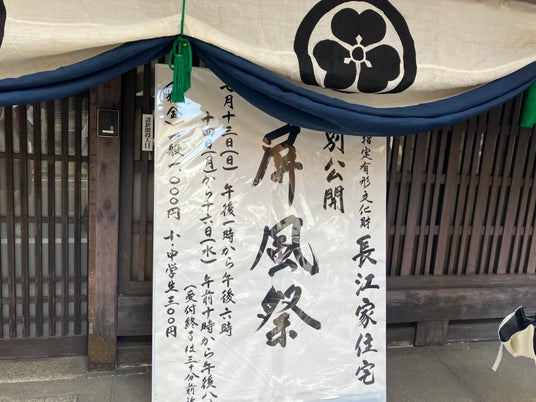 指定有形文化財 長江家住宅
別公開
屏風祭
七月十三日(日) 午後一時から午後六時
十四日(月)から十六日(水) 午前十時から午後八
(受付終了は三十分前
一般一、〇〇〇円 小・中学生三〇〇円